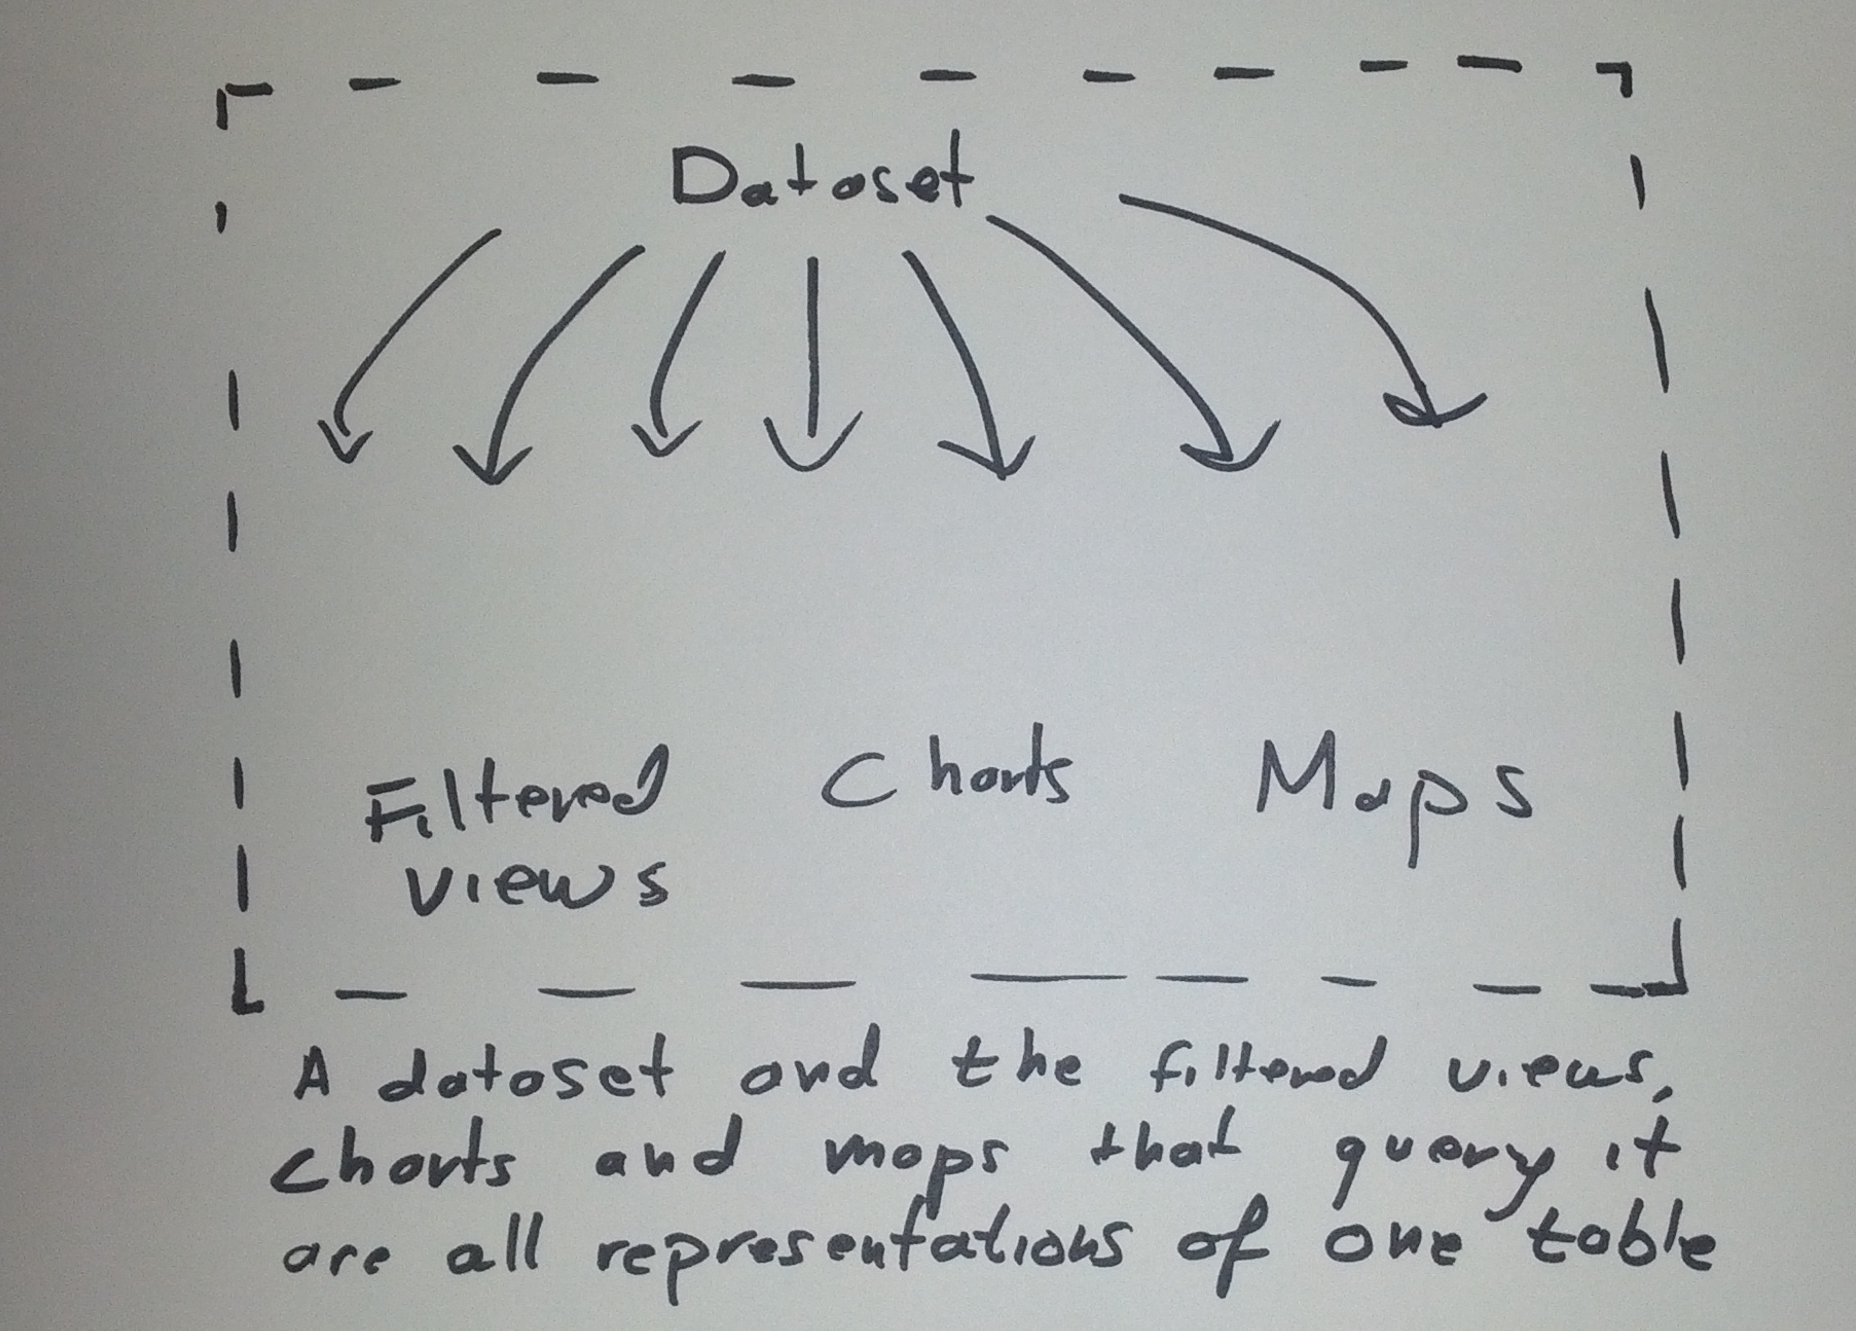 Dataset
Filtered Charts Maps
views
A dataset and the filtered views,
charts and maps that query it
are all representations of one table